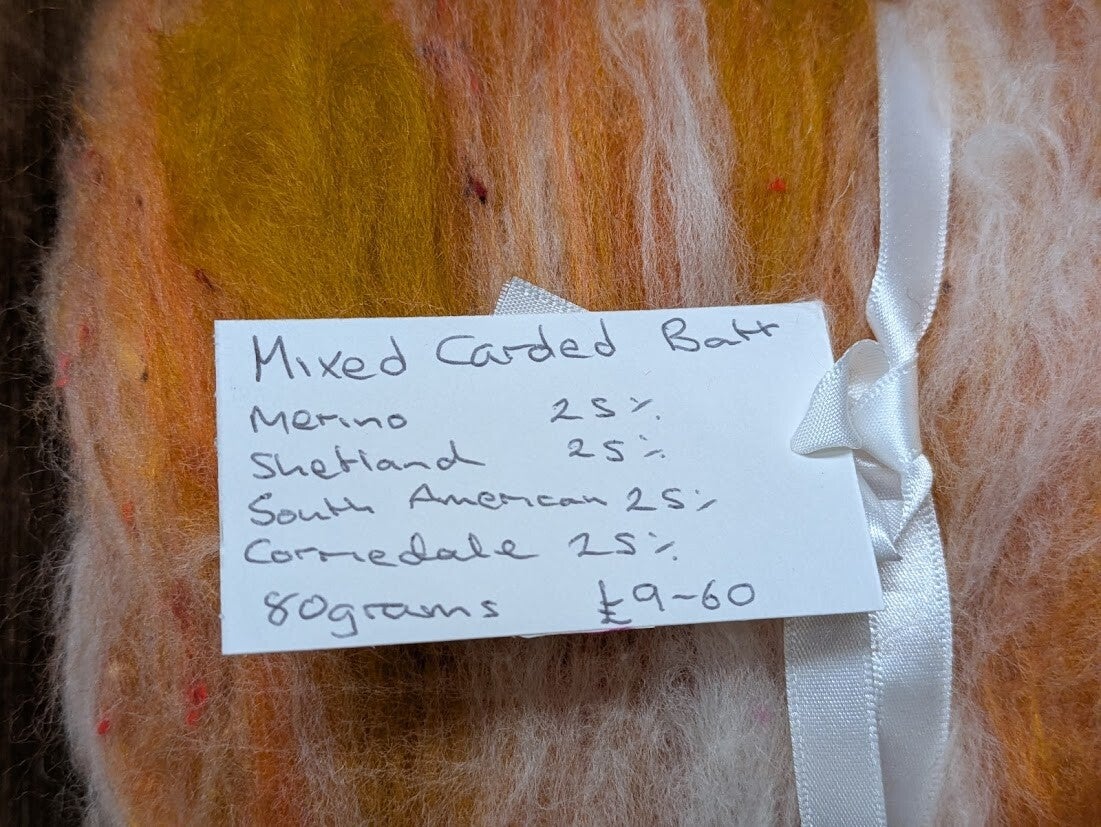 Mixed Carded Batt
Merino 25%
Shetland 25%
South American 25%
Corriedale 25%
80grams £9-60